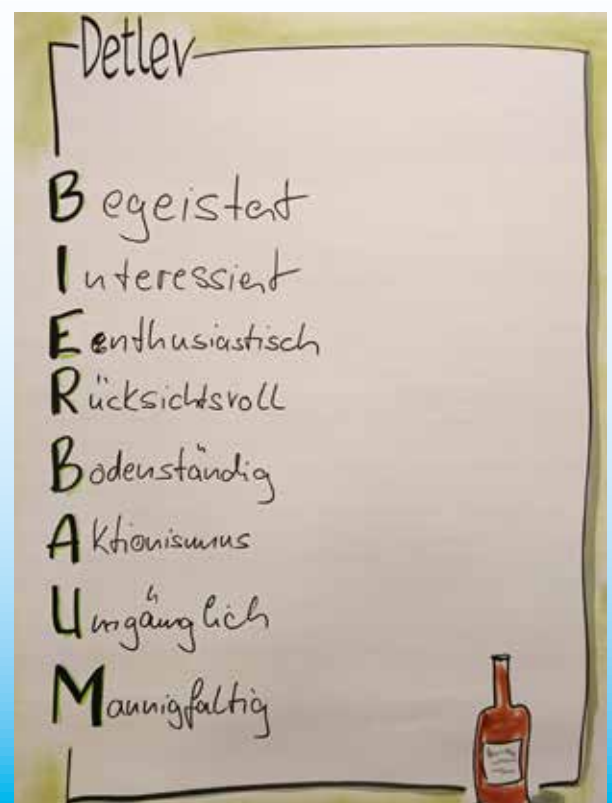 Detlev
Begeistert
Interessiert
Eenthusiastisch
Rücksichtsvoll
Bodenständig
Aktionismus
Umgänglich
Mannigfaltig